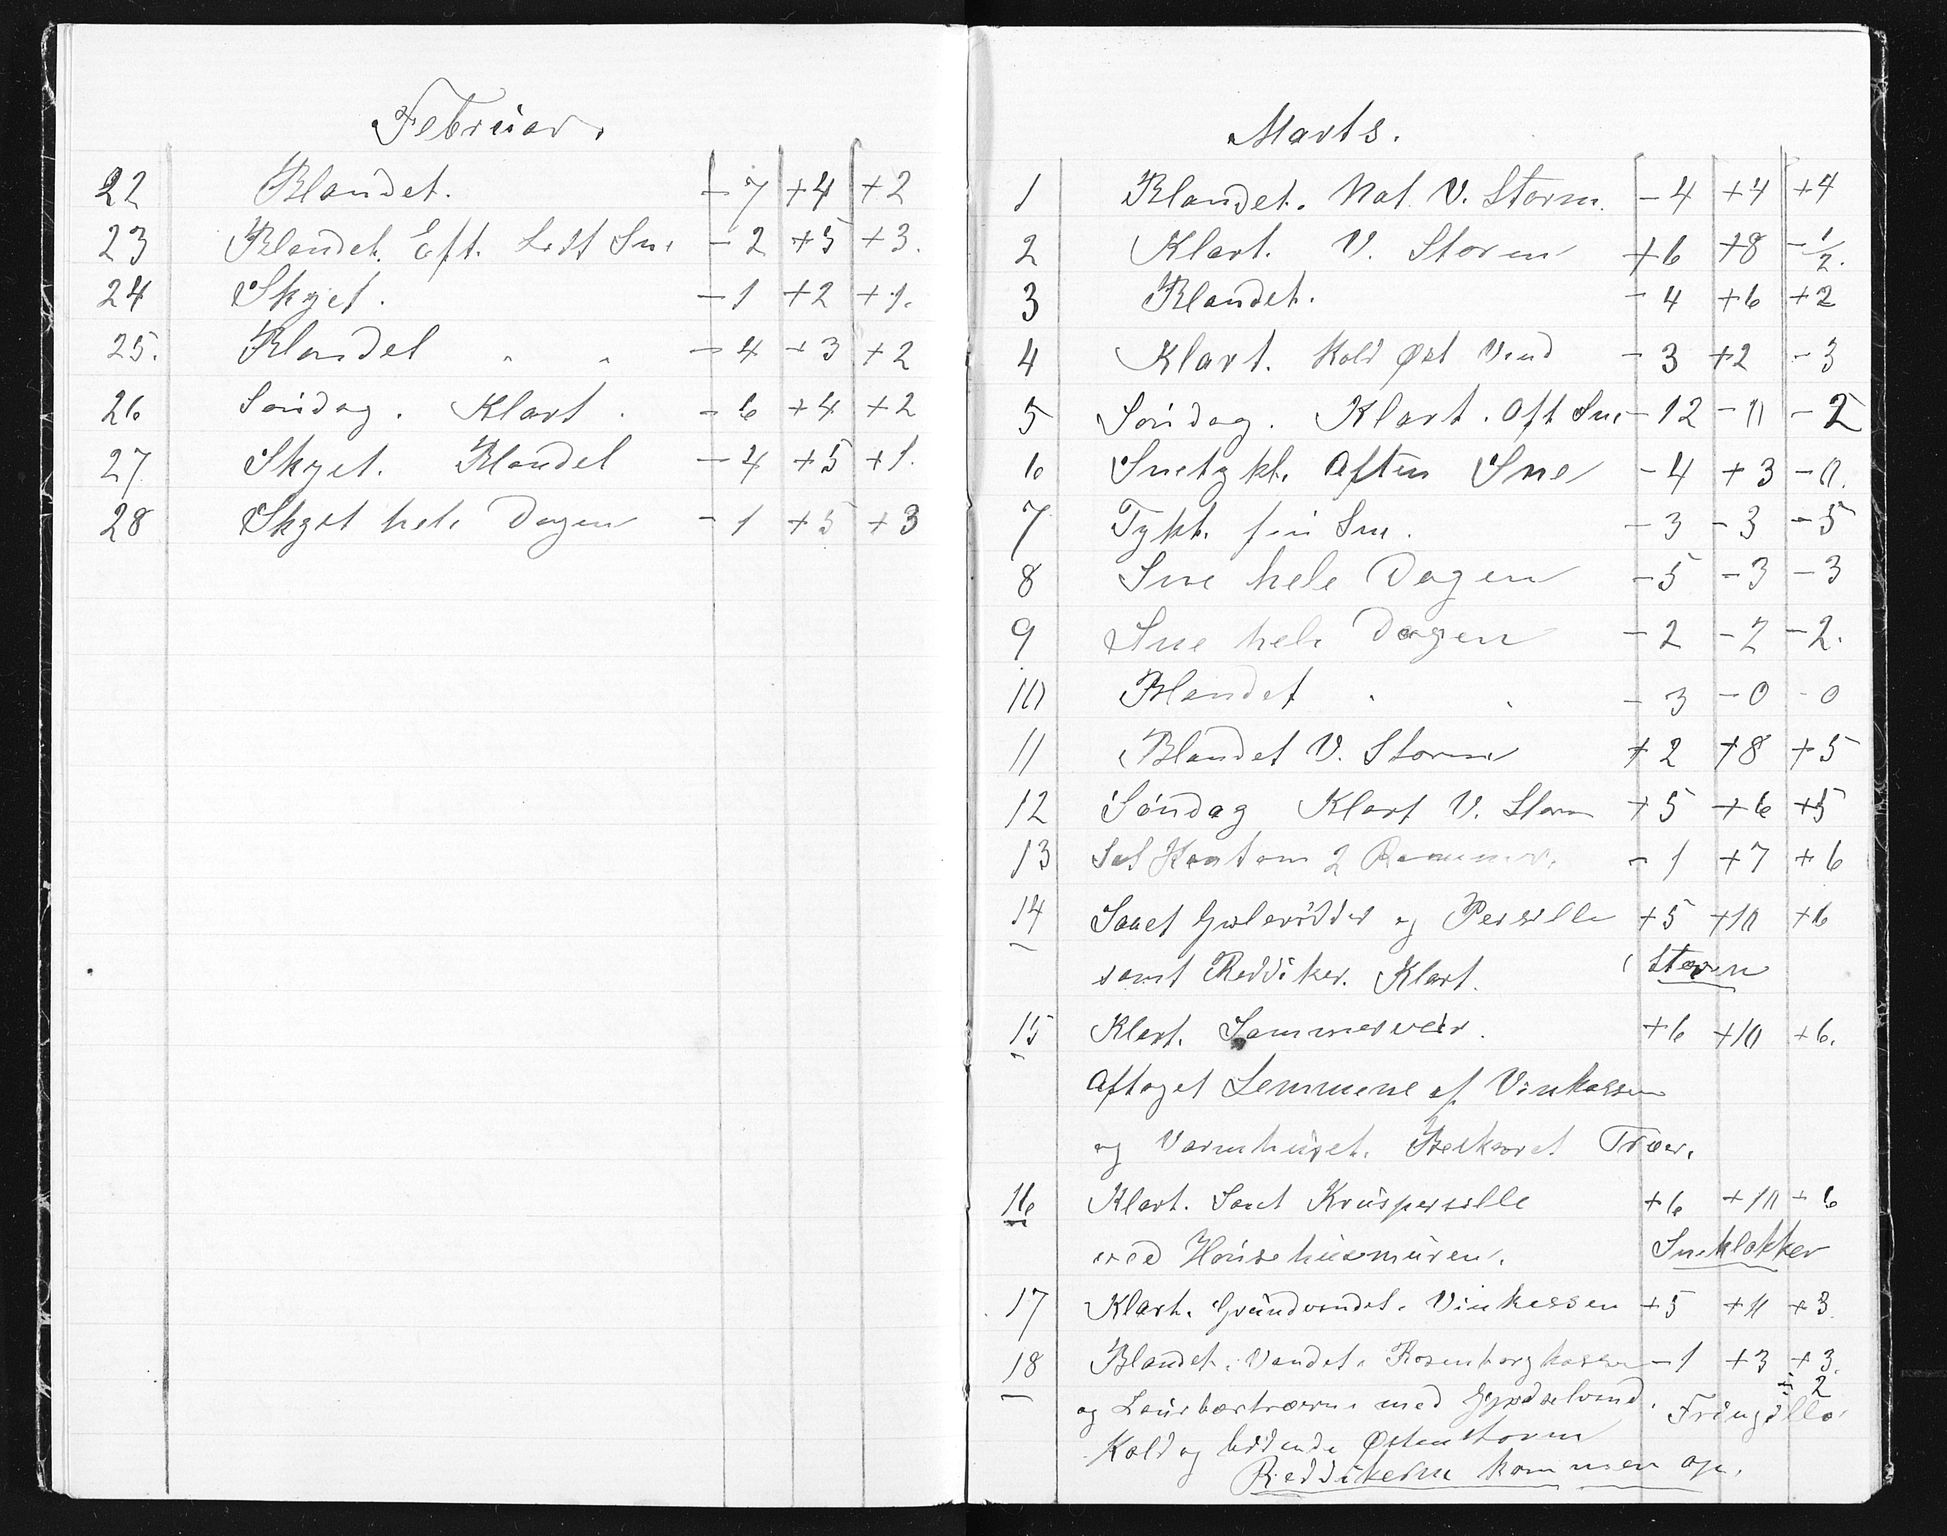 Februar.
22 Blandet. -7 +4 +2
23 Blandet. Eft. Lidt Sne -2 +5 +3.
24 Skyet. -1 +2 +1.
25. Blandet -4 +3 +2
26 Søndag. Klart. -6 +4 +2
27 Skyet. Blandet -4 +5 +1.
28 Skyet hele Dagen -1 +5 +3
Marts.
1 Blandet. Nat V. Storm. -4 +4 +4
2 Klart. V. Storm +6 +8 -1/2.
3 Blandet. -4 +6 +2
4 Klart. Kold Øst Vind -3 +2 -3
5 Søndag. Klart. Aft Sne -12 -0 -2
6 Snetykt. Aften Sne -4 +3 -0.
7 Tykt. fin Sne. -3 -3 -5
8 Sne hele Dagen -5 -3 -3
9 Sne hele Dagen -2 -2 -2.
10 Blandet -3 -0 -0
11 Blandet V. Storm +2 +8 +5
12 Søndag Klart V. Storm +5 +6 +5
13 2 -1 +7 +6
14 Saaet Gulerødder og Persille +5 +10 +6
samt Reddiker. Klart. Storm
15 Klart. Sommerveir. +6 +10 +6.
Aftaget Lemmene af Vinkassen
og Varmhuset. Beskaaret Træer.
16 Klart. Saaet Kruspersille +6 +10 +6
ved Hønsehusmuren. Sneklokker
17 Klart. Grundvandet. Vinkassen +5 +11 +3.
18 Blandet. Vandet. Rosenborgkassen -1 +3 +3.
2
og Laurbærtræerne med Gjødselvand. Fringilla
Kold og bidende Østenstorm
Reddikerne kommen op.